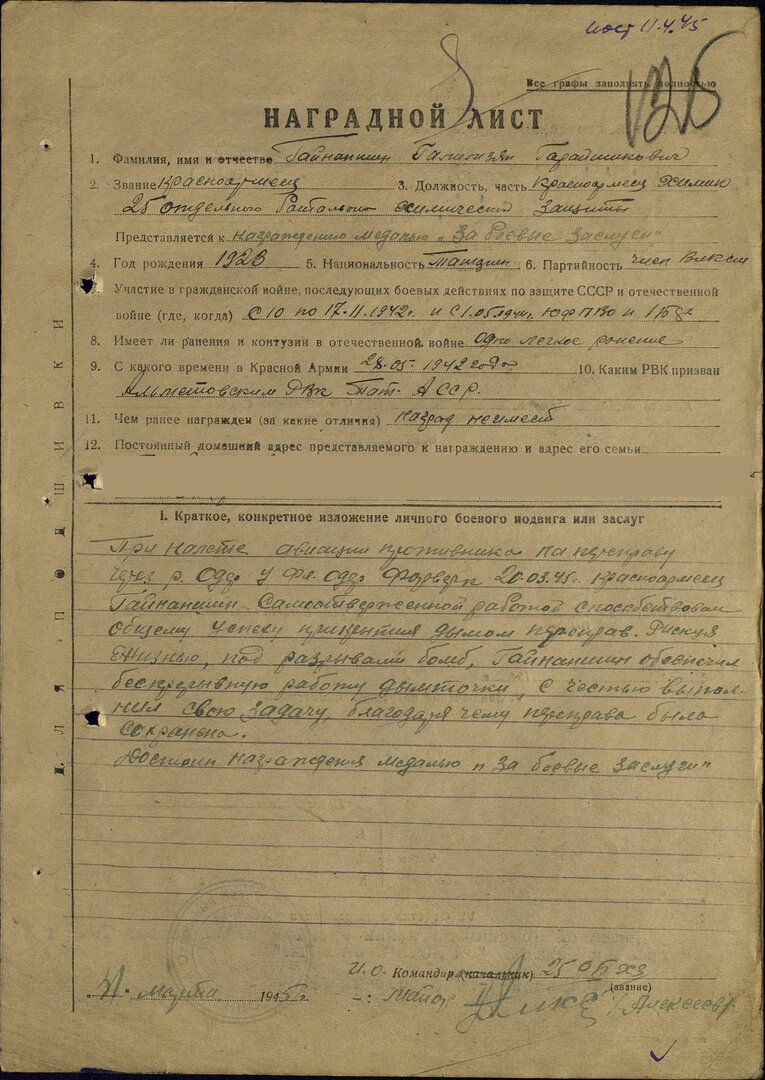 пост 11.4.45
Все графы заполнять полностью
НАГРАДНОЙ ЛИСТ
1. Фамилия, имя и отчество Гайнаншин
2. Звание Красноармеец 3. Должность, часть Красноармеец Химик
25 отдельного Батальона химической Защиты
Представляется к награждению медалью „За боевые заслуги"
4. Год рождения 1923 5. Национальность Татарин 6. Партийность член Влксм
Участие в гражданской войне, последующих боевых действиях по защите СССР и отечественной
войне (где, когда) с 10 по 17.11.1942г. и с 1.05.1944г. и 1 Бф
8. Имеет ли ранения и контузии в отечественной войне Одно легкое ранение
9. С какого времени в Красной Армии 28.05.1942 года 10. Каким РВК призван
Альметовским РВК Тат. АССР.
11. Чем ранее награжден (за какие отличия) Наград неимеет
12. Постоянный домашний адрес представляемого к награждению и адрес его семьи
ДЛЯ ПОДШИВКИ
I. Краткое, конкретное изложение личного боевого подвига или заслуг
При налете авиации противника на переправу
через р. Одер у Фл. Одер Форверк 20.03.45г. красноармеец
Гайнаншин Самоотверженной работой способствовал
общему успеху прикрытия дымом переправ. Рискуя
Жизнью, под разрывами бомб, Гайнаншин обеспечил
беспрерывную работу дымточки, с честью выпол-
нил свою задачу, благодаря чему переправа была
сохранена.
Достоин награждения медалью „За боевые заслуги"
И.О. Командир (начальник) 25 ОБхз
(звание)
31. марта 1945 г. -: майор /Алексеев/